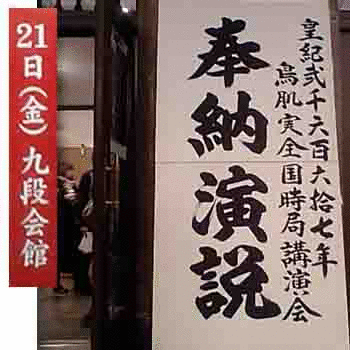 皇紀弐千六百六拾七年
鳥肌実全国時局講演会
奉納演説
21日(金)九段会館